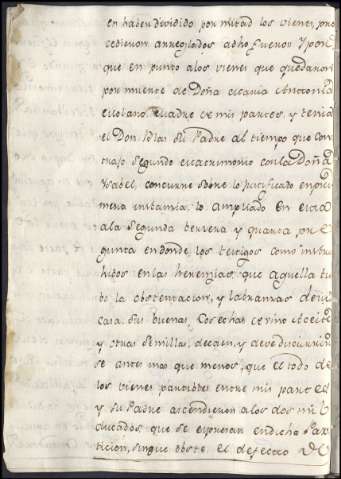 en haber dividido por mitad los vienes, pro
cedieron arreglados adho fuero Y por
que en punto alos vienes que quedaron
por muerte de Doña Maria Antonia
Madre de mis partes, y tenia
el Don Blas Su Padre al tiempo que con
trajo segundo Matrimonio con la Doña
Ysabel, concurre sobre lo justificado en pri
mera instancia, lo ampliado en esta
ala Segunda tercera y quarta pre
gunta en donde los testigos como instru
hidos en las herencias, que aquella tu
bo la obstentacion, y labranzas de su
casa, sus buenas Cosechas de vino Aceite
y otras Semillas, decaen, y deve discurrir
se antes mas que menos, que el todo de
los vienes partibles entre mis partes
y su Padre ascendieron alos dos mil
ducados, que se expresan en dicha Par
ticion, sin que obste el defecto de